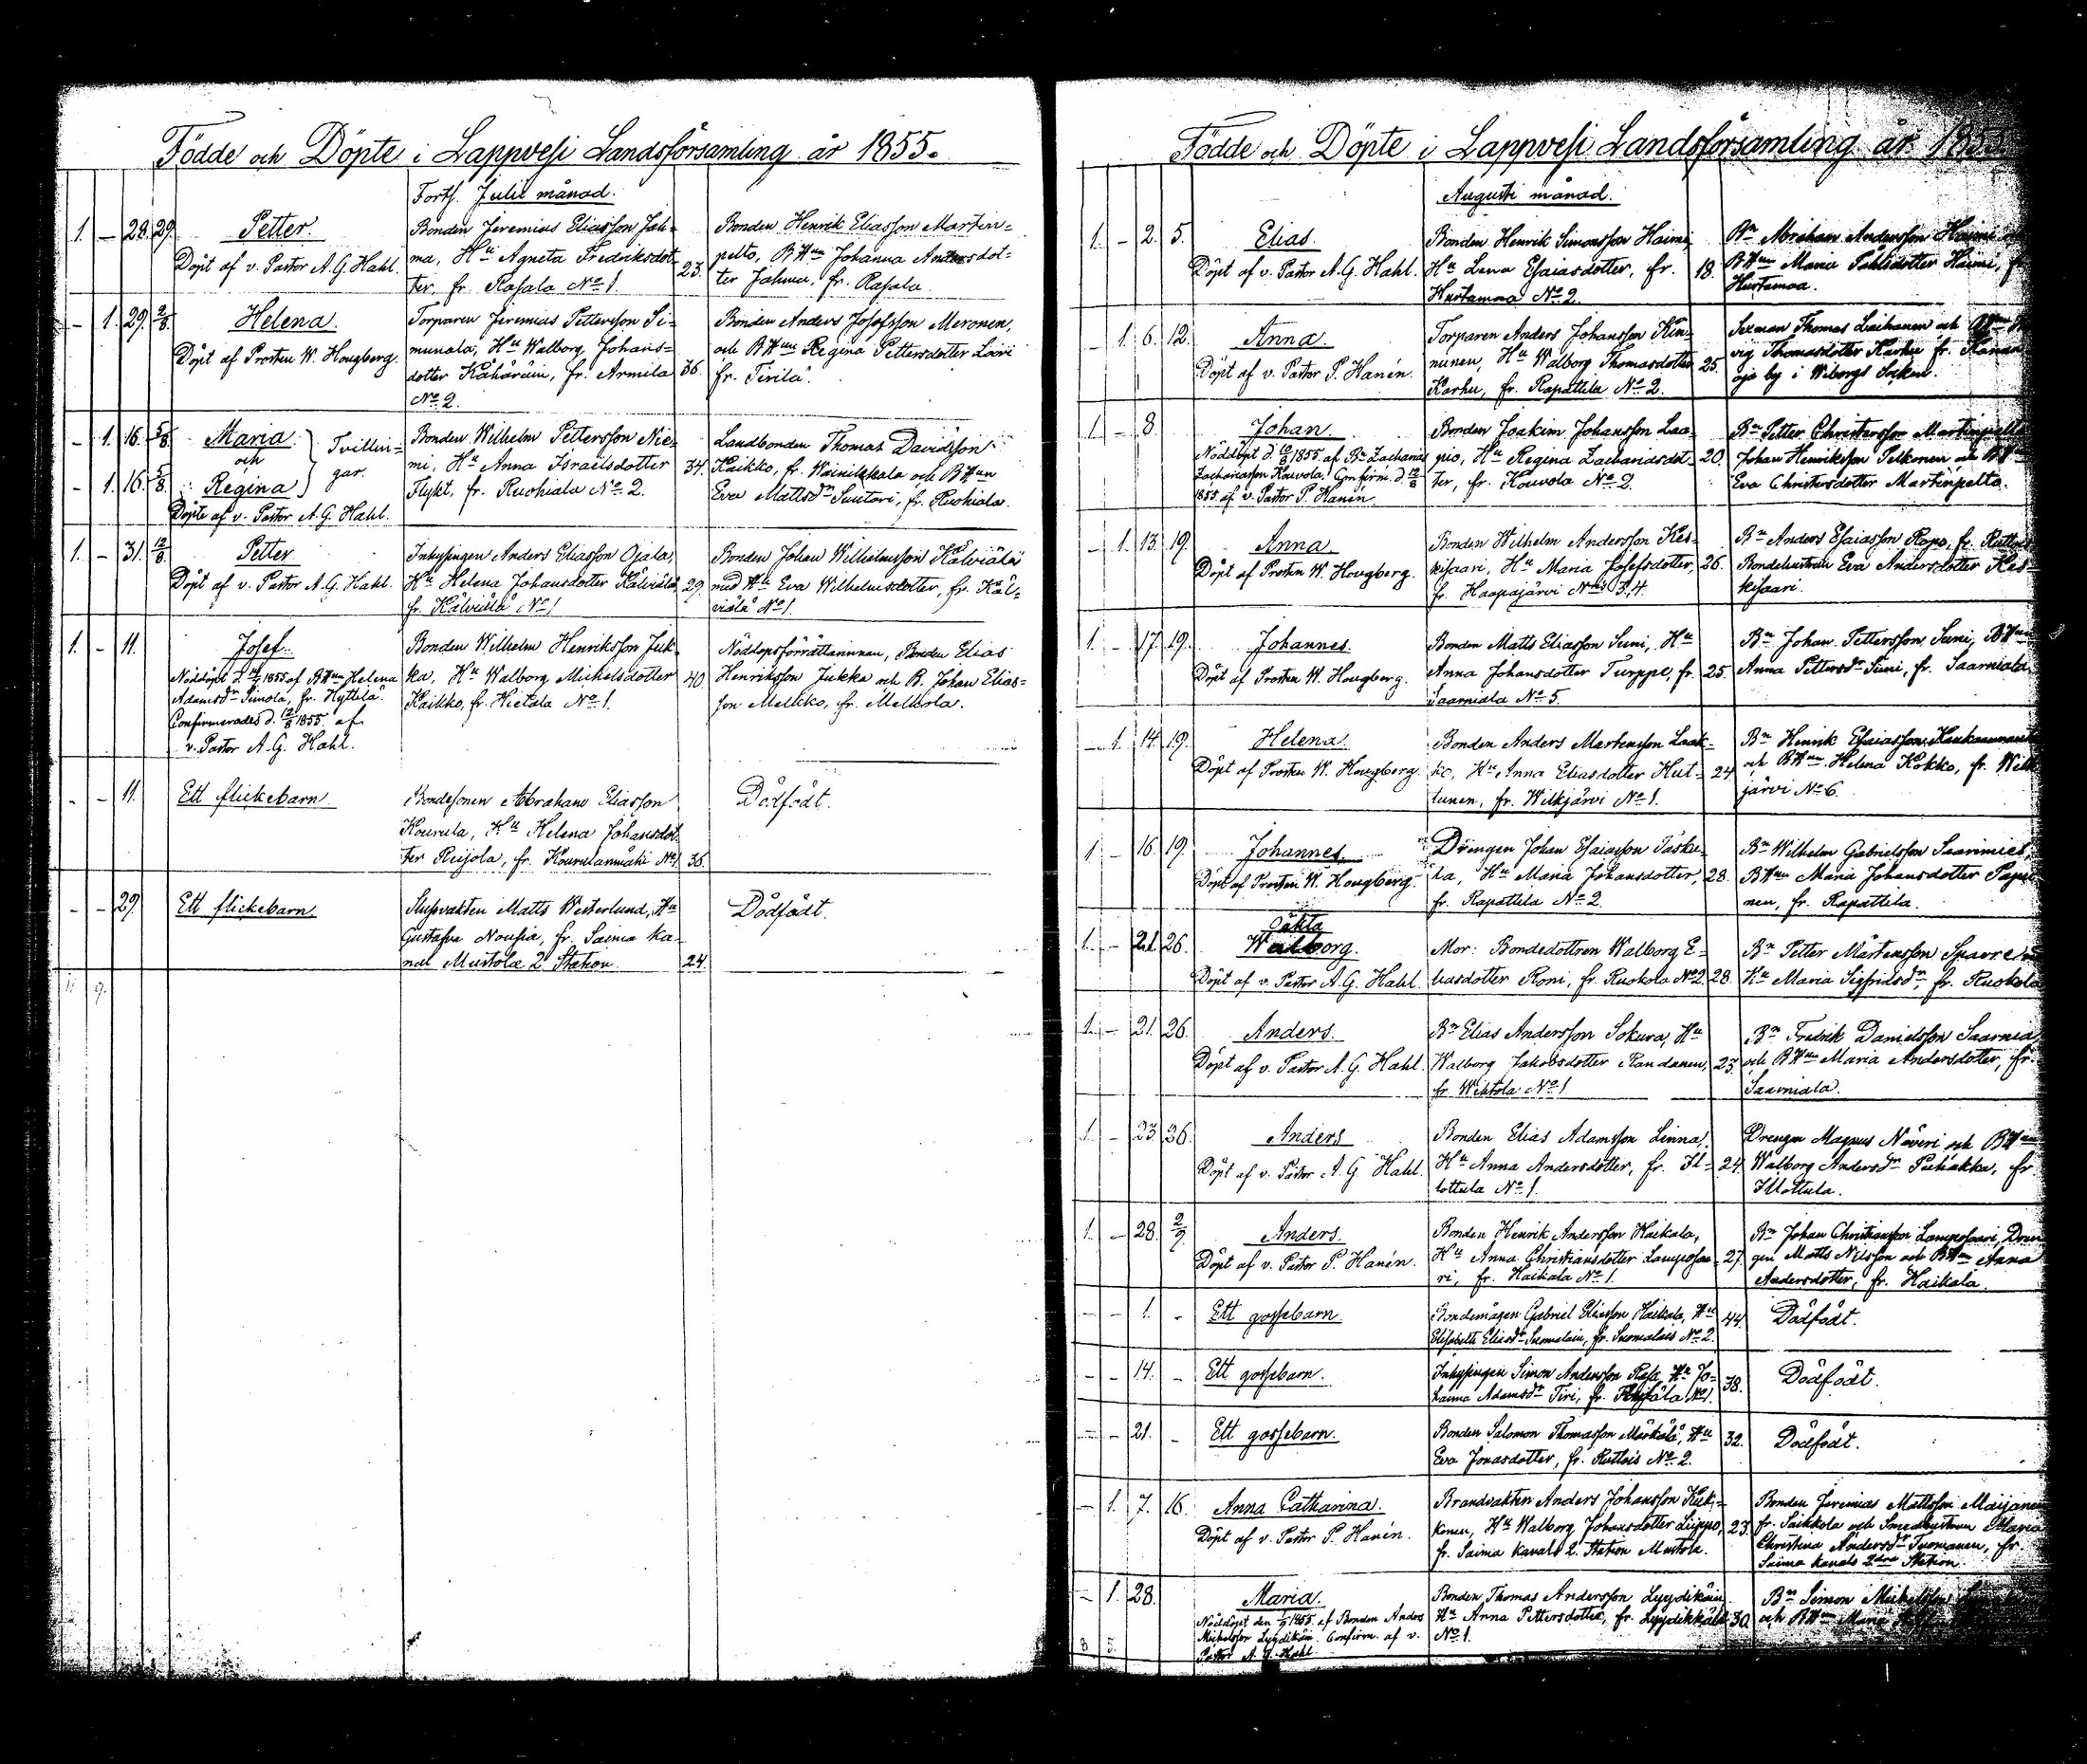 Födde och Döpte i Lappvesi Landsförsamling år 1855.
Forts. Julii månad.
1. — 28. 29. Petter.
Döpt af v. Pastor A. G. Hahl.
Bonden Jeremias Eliasson Jah-
ma, Hu Agneta Fredriksdot-
ter, fr. Rasala No 1. 23.
Bonden Henrik Eliasson Martin-
pelto, BHun Johanna Andersdot-
ter Jahma, fr. Rasala.
— 1. 29. 2/8. Helena.
Döpt af Prosten W. Hougberg.
Torparen Jeremias Pettersson Si-
munala, Hu Walborg Johans-
dotter Kähäräin, fr. Armila 36.
No 2.
Bonden Anders Josefsson Meronen,
och BHun Regina Pettersdotter Loori
fr. Tirilä.
— 1. 16. 5/8. Maria
och
— 1. 16. 5/8. Regina
Tvillin-
gar.
Döpte af v. Pastor A. G. Hahl.
Bonden Wilhelm Pettersson Nie-
mi, Hu Anna Israelsdotter 34.
Flykt, fr. Ruohiala No 2.
Landbonden Thomas Davidsson
Kaikko, fr. Wainikkala och BHun
Eva Mattsdr Suutari, fr. Ruohiala.
1. — 31. 12/8. Petter
Döpt af v. Pastor A. G. Hahl.
Inhysingen Anders Eliasson Ojala,
Hu Helena Johansdotter Kälviälä, 29.
fr. Kälviälä No 1
Bonden Johan Wilhelmsson Kälviälä
med Hu Eva Wilhelmsdotter, fr. Käl-
viälä No 1.
1. — 11. Josef.
Nöddöpt d. 1855 af BHun Helena
Adamsdr Simola, fr. Hyttilä.
Confirmerades d. 12/8 1855 af
v. Pastor A. G. Hahl.
Bonden Wilhelm Henriksson Juk-
ka, Hu Walborg Michelsdotter 40
Kaikko, fr. Hietala No 1.
Nöddopsförrättarinnan, Bonden Elias
Henriksson Jukka och B. Johan Elias-
son Melkko, fr. Melkkola.
— — 11. Ett flickebarn
Bondesonen Abraham Eliasson
Kourula, Hu Helena Johansdot-
ter Reijola, fr. Kourulanmäki No 1. 36.
Dödfödt.
— — 29. Ett flickebarn.
Slussvakten Matts Westerlund, Hu
Gustafva Nousia, fr. Saima ka-
nal Mustola 2 Station. 24.
Dödfödt.
11 9.
Födde och Döpte i Lappvesi Landsförsamling år 1855.
Augusti månad.
1. — 2. 5. Elias.
Döpt af v. Pastor A. G. Hahl.
Bonden Henrik Simonsson Haimi,
Hu Lena Esaiasdotter, fr. 18.
Hurtamaa No 2.
Bn Abraham Andersson Haimi
BHun Maria Pahlsdotter Haimi,
Hurtamaa.
— 1. 6. 12. Anna.
Döpt af v. Pastor P. Hanén.
Torparen Anders Johansson Kin-
nunen, Hu Walborg Thomasdotter 25.
Karhu, fr. Rapattila No 2.
Sexman Thomas och
vig Thomasdotter Karhu fr.
oja by i Wiborgs Socken.
1. — 8. Johan.
Nöddöpt d. 1855 af Bn Zacharias
Zachariasson Kouvola. Confirm. d. 12/8
1855 af v. Pastor P. Hanén
Bonden Joakim Johansson Laa-
pio, Hu Regina Zachariasdot- 20.
ter, fr. Kouvola No 2.
Bn Petter Christersson Martinpelto
Johan Henriksson Pelkonen och BHun
Eva Christersdotter Martinpelto.
— 1. 13. 19. Anna.
Döpt af Prosten W. Hougberg.
Bonden Wilhelm Andersson Kes-
kisaari, Hu Maria Josefsdotter, 26.
fr. Haapajärvi No 3.4.
Bn Anders Esaiasson Rapo, fr.
Bondehustrun Eva Andersdotter Kes-
kisaari.
1. — 17. 19. Johannes.
Döpt af Prosten W. Hougberg.
Bonden Matts Eliasson Suni, Hu
Anna Johansdotter Turppe, fr. 25.
Saarniala No 5.
Bn Johan Pettersson Suni, BHun
Anna Pettersdr Suni, fr. Saarniala.
— 1. 14. 19. Helena.
Döpt af Prosten W. Hougberg
Bonden Anders Martensson Laak-
ko, Hu Anna Eliasdotter Hut- 24
tunen, fr. Wilkjärvi No 1.
Bn Henrik Esaiasson
och BHun Helena Kokko, fr. Wilk-
järvi No 6.
1. — 16. 19. Johannes.
Döpt af Prosten W. Hougberg.
Drengen Johan Esaiasson Taski-
la, Hu Maria Johansdotter, 28.
fr. Rapattila No 2.
Bn Wilhelm Gabrielsson Saarimies,
BHun Maria Johansdotter
nen, fr. Rapattila.
Oäkta
1. — 21. 26. Walborg.
Döpt af v. Pastor A. G. Hahl.
Mor: Bondedottren Walborg E-
liasdotter Roni, fr. Ruokola No 2. 28.
Bn Petter Mårtensson Sparre
Hu Maria Sigfridsdr, fr. Ruokola
1. — 21. 26. Anders.
Döpt af v. Pastor A. G. Hahl.
Bn Elias Andersson Sokura, Hu
Walborg Jakobsdotter Randanen, 23.
fr. Wihtola No 1
Bn Fredrik Danielsson Saarnia,
och BHun Maria Andersdotter, fr.
Saarniala.
1. — 23. 26. Anders
Döpt af v. Pastor A. G. Hahl.
Bonden Elias Adamsson Linna,
Hu Anna Andersdotter, fr. Il- 24.
lottula No 1.
Drengen Magnus Näveri och BHun
Walborg Andersdr Puhakka, fr.
Illottula.
1. — 28. 2/9. Anders.
Döpt af v. Pastor P. Hanén.
Bonden Henrik Andersson Haikala,
Hu Anna Christiansdotter Lamposaa- 27.
ri, fr. Haikala No 1.
Bn Johan Christiansson Lamposaari, Dren-
gen Matts Nilsson och BHun Anna
Andersdotter, fr. Haikala.
— — 1. — Ett gossebarn.
Bondemågen Gabriel Eliasson Haikala, Hu 44.
Elisabeth Eliasdr Suomalain, fr. Suomalais No 2.
Dödfödt.
— — 14. — Ett gossebarn.
Inhysingen Simon Andersson Rasa, Hu Jo- 38.
hanna Adamsdr Tiri, fr. No 1.
Dödfödt.
— — 21. — Ett gossebarn.
Bonden Salomon Thomasson Märkälä, Hu 32.
Eva Jonasdotter, fr. Ruttois No 2.
Dödfödt.
— 1. 7. 16. Anna Catharina.
Döpt af v. Pastor P. Hanén.
Brandvakten Anders Johansson Kuk-
konen, Hu Walborg Johansdotter Liippo, 23.
fr. Saima kanals 2. Station Mustola.
Bonden Jeremias Mattsson Maijanen
fr. Saikkola och Smedhustrun Maria
Christina Andersdr Tuomanen, fr.
Saima kanals 2dra Station.
— 1. 28. Maria.
Nöddöpt den 1855 af Bonden Anders
Michelsson Lyydikäin. Confirm. af v.
Pastor A. G. Hahl.
Bonden Thomas Andersson Lyydikäin,
Hu Anna Pettersdotter, fr. Lyydikkälä 30.
No 1.
Bn Simon Michelsson
och BHun Maria
8 5.